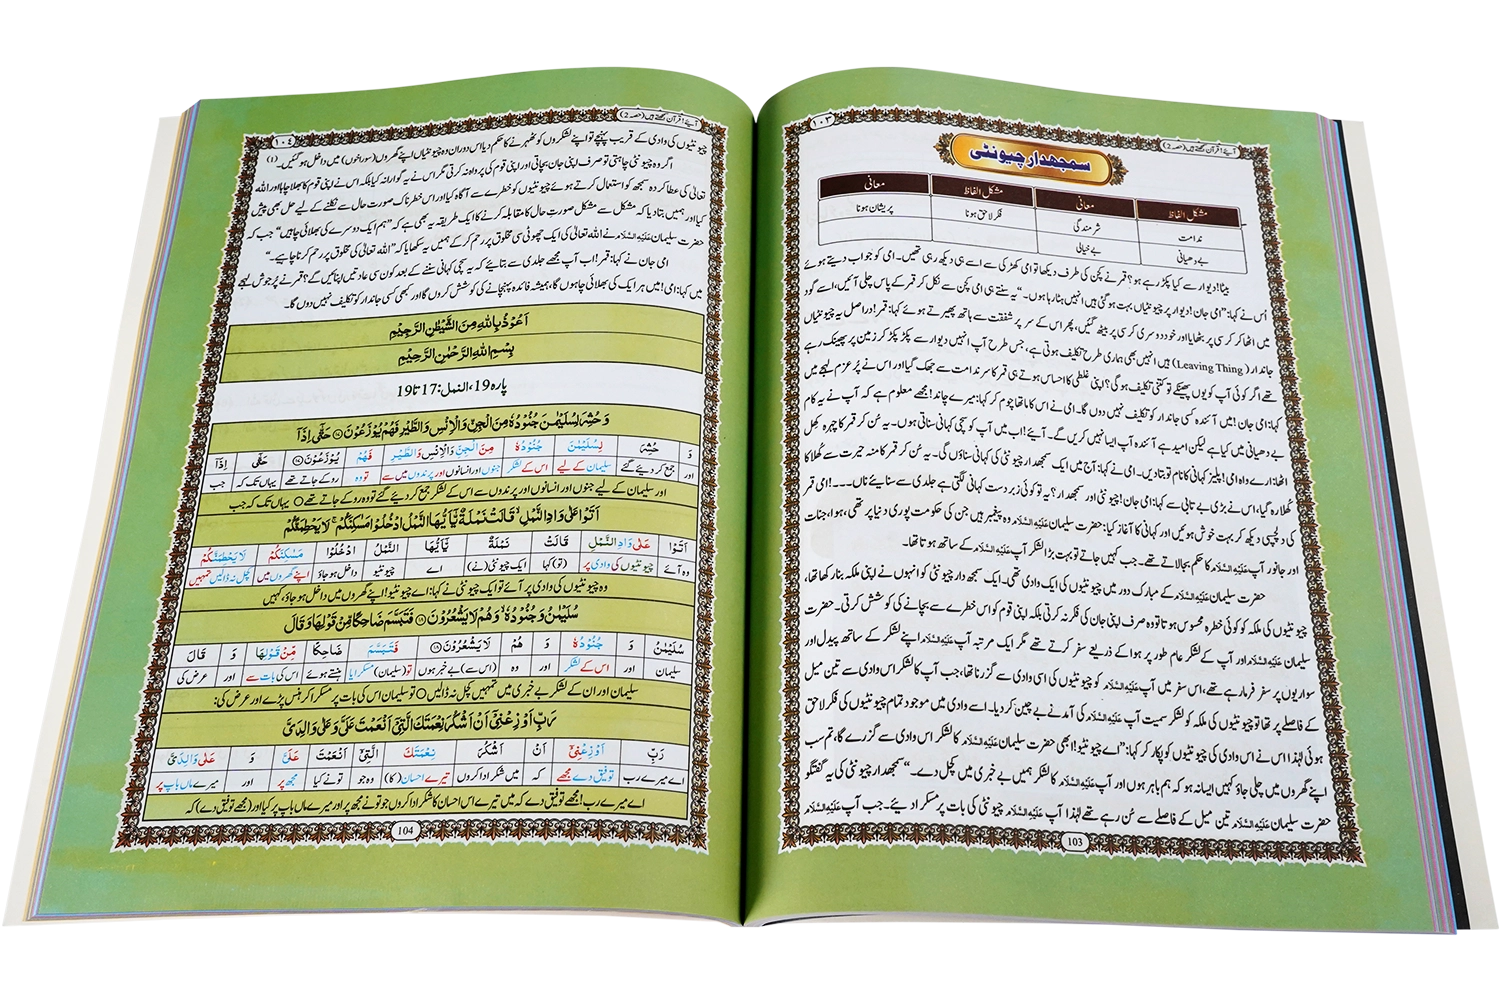 آیئے! قرآن سمجھتے ہیں (حصہ 2)
۱۰۳
سمجھدار چیونٹی
مشکل الفاظ معانی مشکل الفاظ معانی
ندامت شرمندگی فکر لاحق ہونا پریشان ہونا
بے دھیانی بے خیالی
بیٹا! دیوار سے کیا پکڑ رہے ہو؟ قمر نے کچن کی طرف دیکھا تو امی کھڑکی سے اسے ہی دیکھ رہی تھیں۔ امی کو جواب دیتے ہوئے
اُس نے کہا: ”امی جان! دیوار پر چیونٹیاں بہت ہو گئی ہیں انہیں ہٹا رہا ہوں۔“ یہ سنتے ہی امی کچن سے نکل کر قمر کے پاس چلی آئیں، اسے گود
میں اٹھا کر کرسی پر بٹھایا اور خود دوسری کرسی پر بیٹھ گئیں، پھر اس کے سر پر شفقت سے ہاتھ پھیرتے ہوئے کہا: قمر! دراصل یہ چیونٹیاں
جاندار (Leaving Thing) ہیں، انہیں بھی ہماری طرح تکلیف ہوتی ہے، جس طرح آپ انہیں دیوار سے پکڑ پکڑ کر زمین پر پھینک رہے
تھے اگر کوئی آپ کو یوں پھینکے تو کتنی تکلیف ہو گی؟ اپنی غلطی کا احساس ہوتے ہی قمر کا سر ندامت سے جھک گیا اور اس نے پُر عزم لہجے میں
کہا: امی جان! میں آئندہ کسی جاندار کو تکلیف نہیں دوں گا۔ امی نے اس کا ماتھا چوم کر کہا: میرے چاند! مجھے معلوم ہے کہ آپ نے یہ کام
بے دھیانی میں کیا ہے لیکن امید ہے آئندہ آپ ایسا نہیں کریں گے۔ آیئے! اب میں آپ کو سچی کہانی سناتی ہوں۔ یہ سُن کر قمر کا چہرہ کھل
اٹھا: ارے واہ امی! پلیز کہانی کا نام تو بتا دیں۔ امی نے کہا: آج میں ایک سمجھدار چیونٹی کی کہانی سناؤں گی۔ یہ سُن کر قمر کا منہ حیرت سے کُھلا کا
کُھلا رہ گیا، اس نے بڑی بے تابی سے کہا: امی جان! چیونٹی اور سمجھدار؟ یہ تو کوئی زبردست کہانی لگتی ہے جلدی سے سنایئے ناں۔۔۔! امی قمر
کی دلچسپی دیکھ کر بہت خوش ہوئیں اور کہانی کا آغاز کیا: حضرت سلیمان عَلَیْہِ السَّلَام وہ پیغمبر ہیں جن کی حکومت پوری دنیا پر تھی، ہوا، جنات
اور جانور آپ عَلَیْہِ السَّلَام کا حکم بجالاتے تھے۔ جب کہیں جاتے تو بہت بڑا لشکر آپ عَلَیْہِ السَّلَام کے ساتھ ہوتا تھا۔
حضرت سلیمان عَلَیْہِ السَّلَام کے مبارک دور میں چیونٹیوں کی ایک وادی تھی۔ ایک سمجھدار چیونٹی کو انہوں نے اپنی ملکہ بنا رکھا تھا،
چیونٹیوں کی ملکہ کو کوئی خطرہ محسوس ہوتا تو وہ صرف اپنی جان کی فکر نہ کرتی بلکہ اپنی قوم کو اس خطرے سے بچانے کی کوشش کرتی۔ حضرت
سلیمان عَلَیْہِ السَّلَام اور آپ کے لشکر عام طور پر ہوا کے ذریعے سفر کرتے تھے مگر ایک مرتبہ آپ عَلَیْہِ السَّلَام اپنے لشکر کے ساتھ پیدل اور
سواریوں پر سفر فرما رہے تھے، اس سفر میں آپ عَلَیْہِ السَّلَام کو چیونٹیوں کی اسی وادی سے گزرنا تھا، جب آپ کا لشکر اس وادی سے تین میل
کے فاصلے پر تھا تو چیونٹیوں کی ملکہ کو لشکر سمیت آپ عَلَیْہِ السَّلَام کی آمد نے بے چین کر دیا۔ اسے وادی میں موجود تمام چیونٹیوں کی فکر لاحق
ہوئی لہٰذا اس نے اس وادی کی چیونٹیوں کو پکار کر کہا: ”اے چیونٹیو! ابھی حضرت سلیمان عَلَیْہِ السَّلَام کا لشکر اس وادی سے گزرے گا، تم سب
اپنے گھروں میں چلی جاؤ کہیں ایسا نہ ہو کہ ہم باہر ہوں اور آپ عَلَیْہِ السَّلَام کا لشکر ہمیں بے خبری میں کچل دے۔“ سمجھدار چیونٹی کی یہ گفتگو
حضرت سلیمان عَلَیْہِ السَّلَام تین میل کے فاصلے سے سُن رہے تھے لہٰذا آپ عَلَیْہِ السَّلَام چیونٹی کی بات پر مسکرا دیئے۔ جب آپ عَلَیْہِ السَّلَام
103
آیئے! قرآن سمجھتے ہیں (حصہ 2)
۱۰٤
چیونٹیوں کی وادی کے قریب پہنچے تو اپنے لشکروں کو ٹھہرنے کا حکم دیا اس دوران وہ چیونٹیاں اپنے گھروں (سوراخوں) میں داخل ہو گئیں۔ (۱)
اگر وہ چیونٹی چاہتی تو صرف اپنی جان بچاتی اور اپنی قوم کی پرواہ نہ کرتی مگر اس نے یہ گوارا نہ کیا بلکہ اس نے اپنی قوم کا بھلا چاہا اور اللہ
تعالٰی کی عطا کردہ سمجھ کو استعمال کرتے ہوئے چیونٹیوں کو خطرے سے آگاہ کیا اور اس خطرناک صورت حال سے نکلنے کے لیے حل بھی پیش
کیا اور ہمیں بتا دیا کہ مشکل سے مشکل صورتِ حال کا مقابلہ کرنے کا ایک طریقہ یہ بھی ہے کہ ”ہم ایک دوسرے کی بھلائی چاہیں“ جب کہ
حضرت سلیمان عَلَیْہِ السَّلَام نے اللہ تعالٰی کی ایک چھوٹی سی مخلوق پر رحم کر کے ہمیں یہ سکھایا کہ ”اللہ تعالٰی کی مخلوق پر رحم کرنا چاہیے۔“
امی جان نے کہا: قمر! اب آپ مجھے جلدی سے بتائیے کہ یہ سچی کہانی سننے کے بعد کون سی عادتیں اپنائیں گے؟ قمر نے پُر جوش لہجے
میں کہا: امی! میں ہر ایک کی بھلائی چاہوں گا، ہمیشہ فائدہ پہنچانے کی کوشش کروں گا اور کبھی کسی جاندار کو تکلیف نہیں دوں گا۔
اَعُوْذُ بِاللّٰهِ مِنَ الشَّیْطٰنِ الرَّجِیْمِ
بِسْمِ اللّٰهِ الرَّحْمٰنِ الرَّحِیْمِ
پارہ 19، النمل: 17 تا 19
وَ حُشِرَ لِسُلَیْمٰنَ جُنُوْدُهٗ مِنَ الْجِنِّ وَ الْاِنْسِ وَ الطَّیْرِ فَهُمْ یُوْزَعُوْنَ ﴿۱۷﴾ حَتّٰۤى اِذَاۤ
وَ حُشِرَ لِسُلَیْمٰنَ جُنُوْدُهٗ مِنَ الْجِنِّ وَالْاِنْسِ وَالطَّیْرِ فَهُمْ یُوْزَعُوْنَ ﴿۱۷﴾ حَتّٰۤى اِذَاۤ
اور جمع کر دیئے گئے سلیمان کے لیے اس کے لشکر جنوں اور انسانوں اور پرندوں میں سے تو وہ روکے جاتے تھے یہاں تک کہ جب
اور سلیمان کے لیے جنوں اور انسانوں اور پرندوں سے اس کے لشکر جمع کر دیئے گئے تو وہ روکے جاتے تھے ○ یہاں تک کہ جب
اَتَوْا عَلٰى وَادِ النَّمْلِۙ قَالَتْ نَمْلَةٌ یّٰۤاَیُّهَا النَّمْلُ ادْخُلُوْا مَسٰكِنَكُمْۚ لَا یَحْطِمَنَّكُمْ
اَتَوْا عَلٰى وَادِ النَّمْلِ قَالَتْ نَمْلَةٌ یّٰۤاَیُّهَا النَّمْلُ ادْخُلُوْا مَسٰكِنَكُمْ لَا یَحْطِمَنَّكُمْ
وہ آئے چیونٹیوں کی وادی پر (تو) کہا ایک چیونٹی (نے) اے چیونٹیو داخل ہو جاؤ اپنے گھروں میں کچل نہ ڈالیں تمہیں
وہ چیونٹیوں کی وادی پر آئے تو ایک چیونٹی نے کہا: اے چیونٹیو! اپنے گھروں میں داخل ہو جاؤ، کہیں
سُلَیْمٰنُ وَ جُنُوْدُهٗۙ وَ هُمْ لَا یَشْعُرُوْنَ ﴿۱۸﴾ فَتَبَسَّمَ ضَاحِكًا مِّنْ قَوْلِهَا وَ قَالَ
سُلَیْمٰنُ وَ جُنُوْدُهٗ وَ هُمْ لَا یَشْعُرُوْنَ ﴿۱۸﴾ فَتَبَسَّمَ ضَاحِكًا مِّنْ قَوْلِهَا وَ قَالَ
سلیمان اور اس کے لشکر اور وہ (اس سے) بے خبر ہوں تو (سلیمان) مسکرایا ہنستے ہوئے اس کی بات سے اور عرض کی
سلیمان اور ان کے لشکر بے خبری میں تمہیں کچل نہ ڈالیں ○ تو سلیمان اس کی بات پر مسکرا کر ہنس پڑے اور عرض کی:
رَبِّ اَوْزِعْنِیْۤ اَنْ اَشْكُرَ نِعْمَتَكَ الَّتِیْۤ اَنْعَمْتَ عَلَیَّ وَ عَلٰى وَالِدَیَّ
رَبِّ اَوْزِعْنِیْۤ اَنْ اَشْكُرَ نِعْمَتَكَ الَّتِیْۤ اَنْعَمْتَ عَلَیَّ وَ عَلٰى وَالِدَیَّ
اے میرے رب توفیق دے مجھے کہ میں شکر ادا کروں تیرے احسان (کا) وہ جو تو نے کیا مجھ پر اور میرے ماں باپ پر
اے میرے رب! مجھے توفیق دے کہ میں تیرے اس احسان کا شکر ادا کروں جو تو نے مجھ پر اور میرے ماں باپ پر کیا اور (مجھے توفیق دے) کہ
104